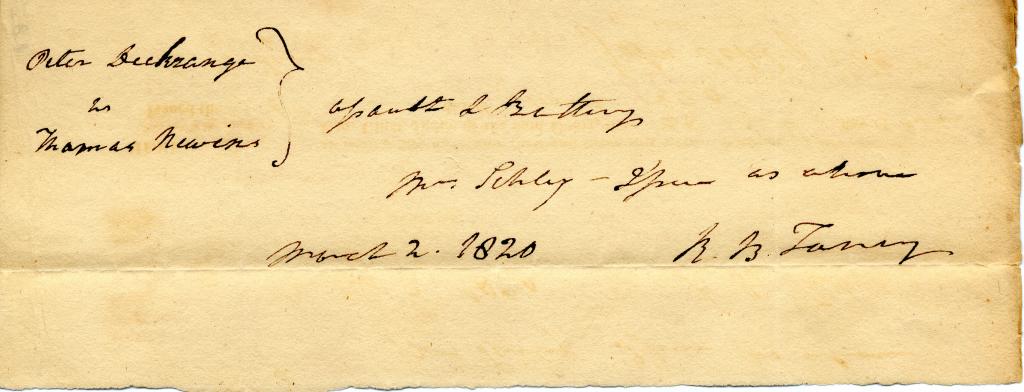 Peter Deckrange
vs
Thomas Nevins
assault & Battery
Mr. Schley - Issue as above
March 2. 1820 R. B. Taney